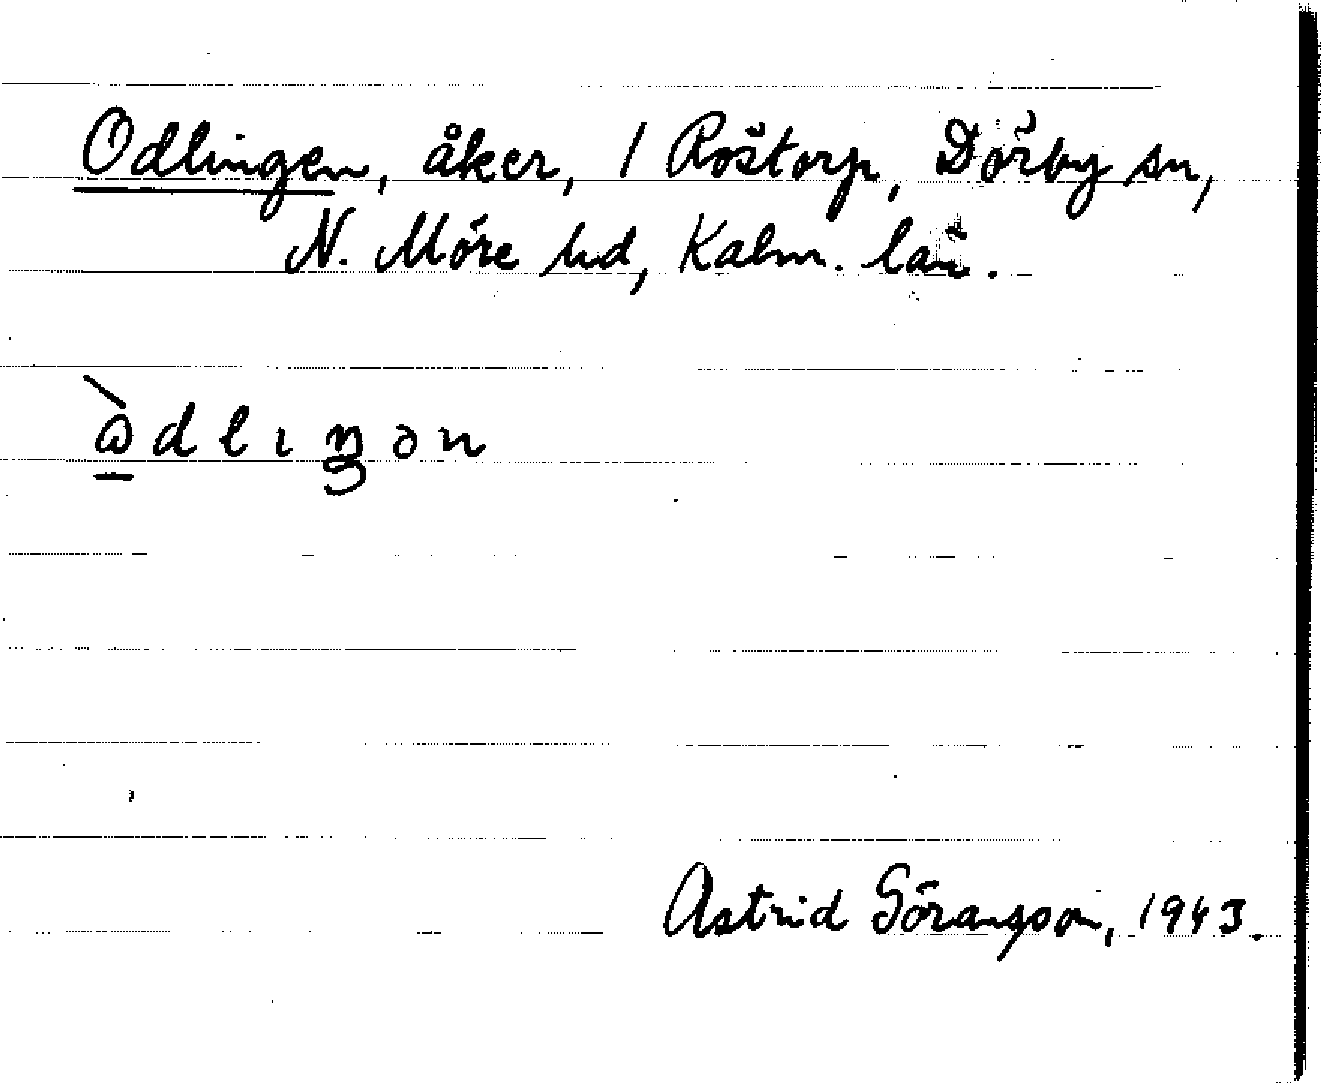 Odlingen, åker, 1 Röstorp, Dörby sn,
N. Möre hd, Kalm. län.
ὼdlıŋən
Astrid Göransson, 1943.